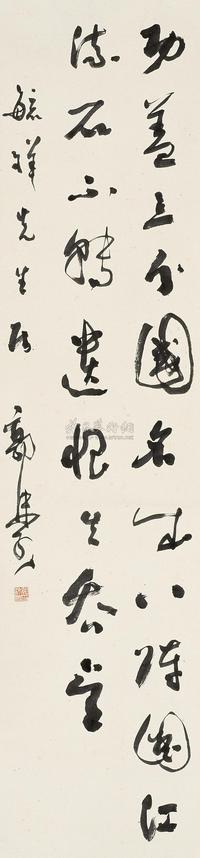 功蓋三分國名成八陣圖江
流石不轉遺恨失吞吳
毓祥先生屬 郭沫若